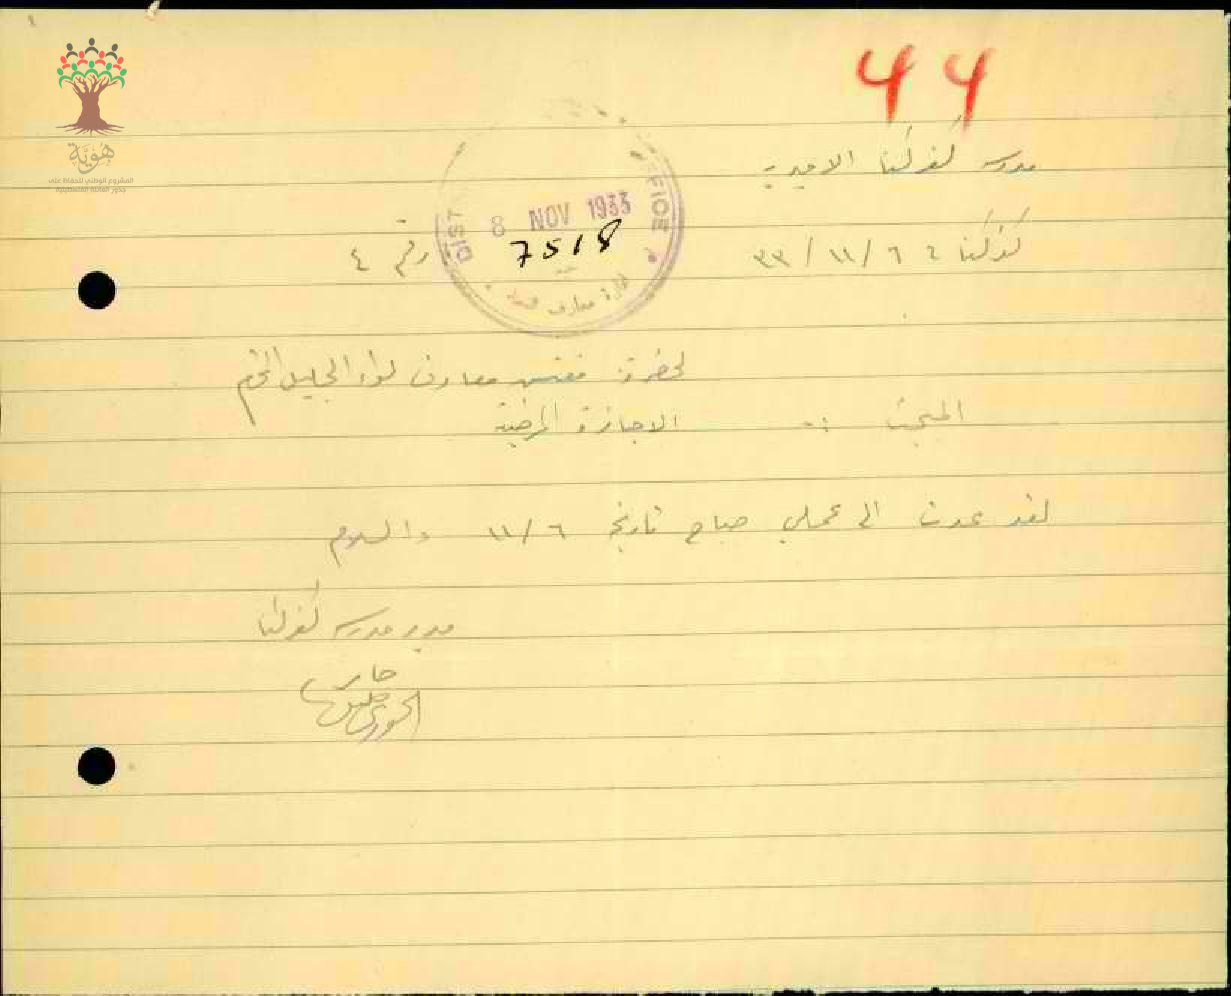 44
هوية
المشروع الوطني للحفاظ على
جذور العائلة الفلسطينية
مدرسة كفركنا الاميرية
DIST OFFICE
8 NOV 1933
7518
ادارة معارف
كفركنا في ٦ / ١١ / ٣٣
رقم ٤
لحضرة مفتش معارف لواء الجليل المحترم
المبحث :- الاجازة المرضية
لقد عدت الى عملي صباح تاريخ ٦ / ١١ والسلام
مدير مدرسة كفركنا
الخوري